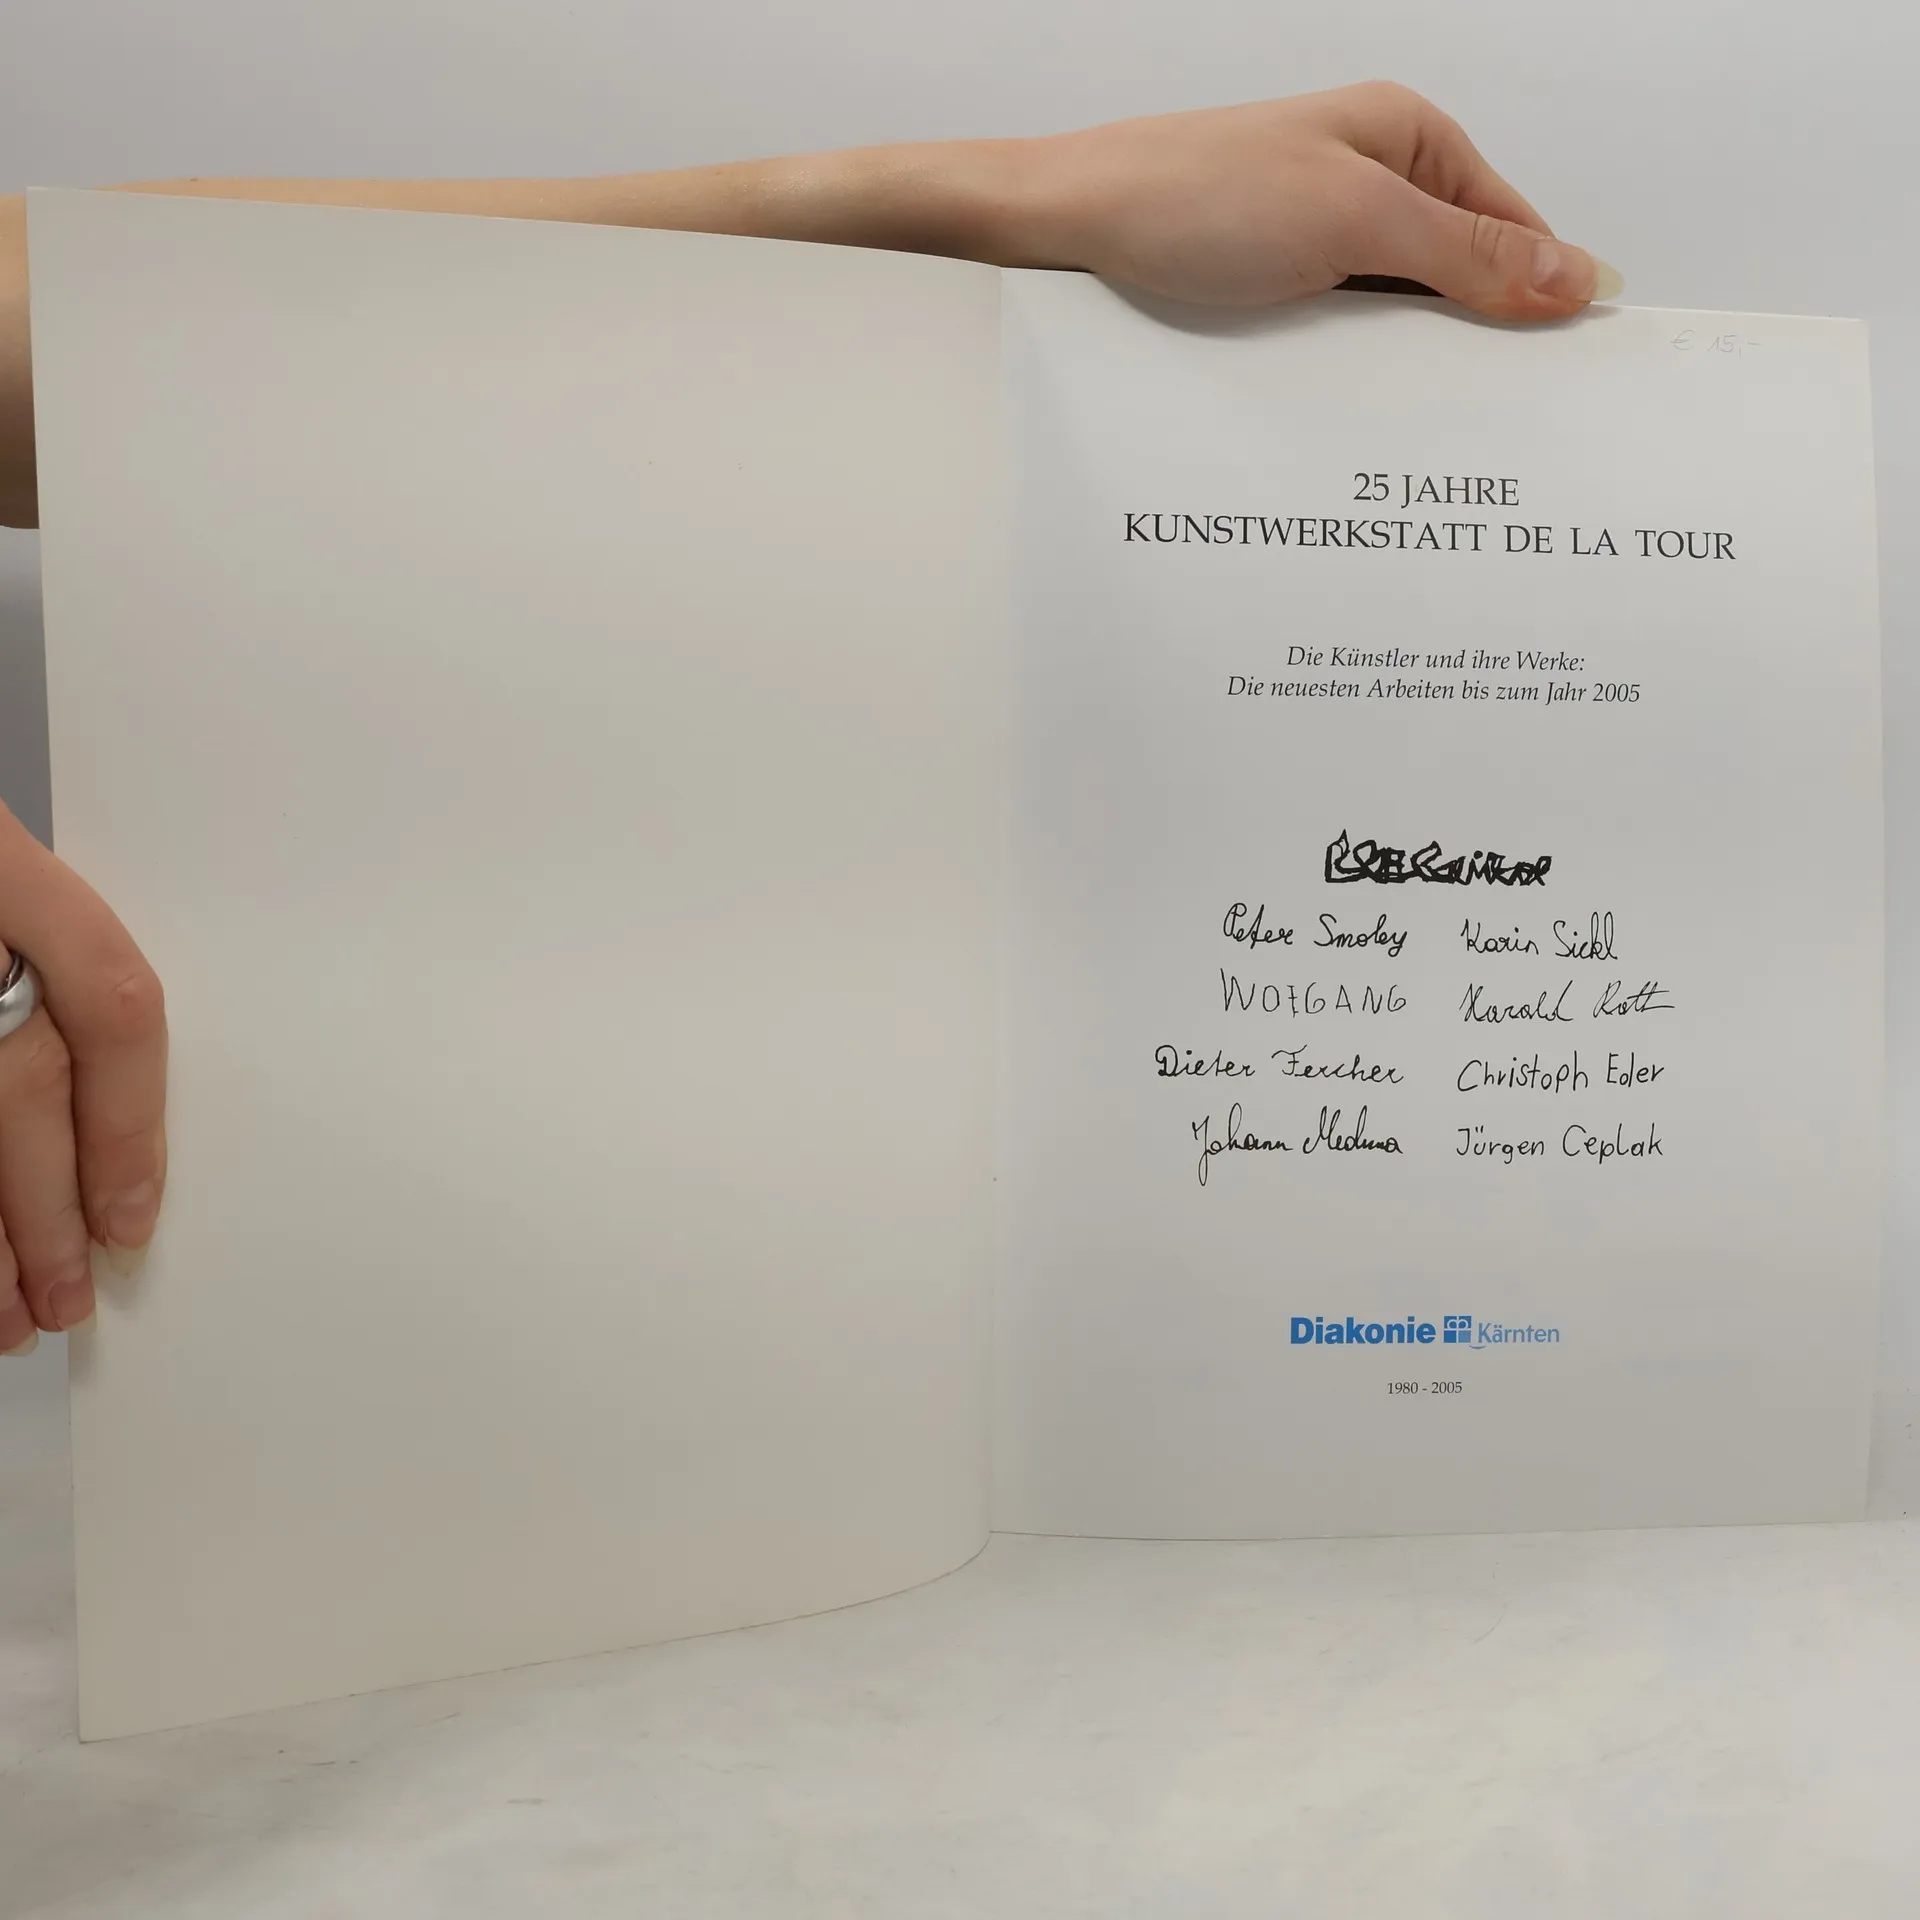 € 15,-
25 JAHRE
KUNSTWERKSTATT DE LA TOUR
Die Künstler und ihre Werke:
Die neuesten Arbeiten bis zum Jahr 2005
Peter Smoley Karin Sickl
WOfGANG Harald Roth
Dieter Fercher Christoph Eder
Johann Meduna Jürgen Ceplak
Diakonie Kärnten
1980 - 2005